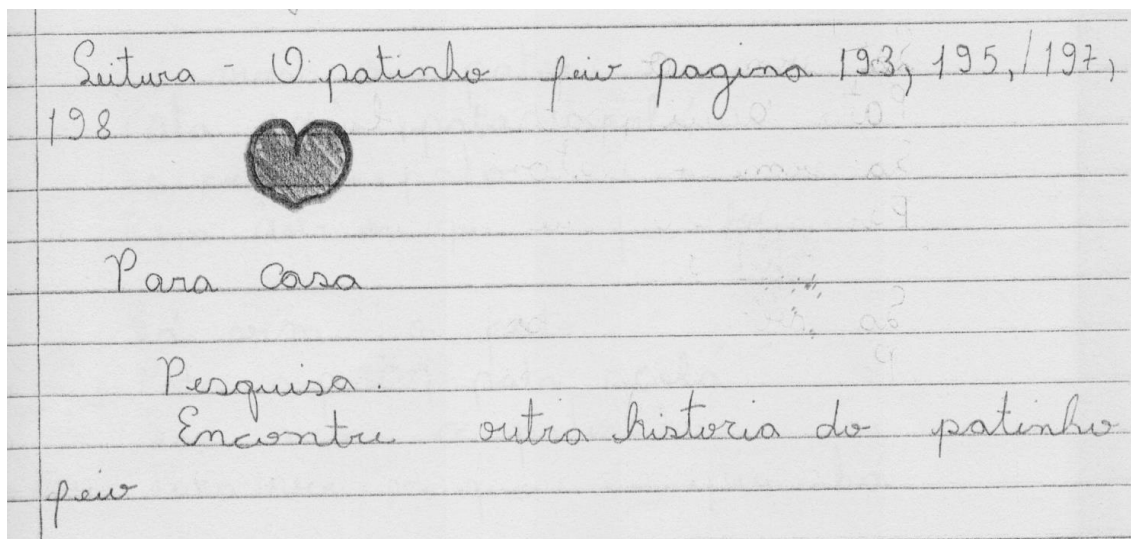 Leitura - O patinho feio pagina 193, 195, 197,
198
Para Casa
Pesquisa.
Encontre outra historia do patinho
feio